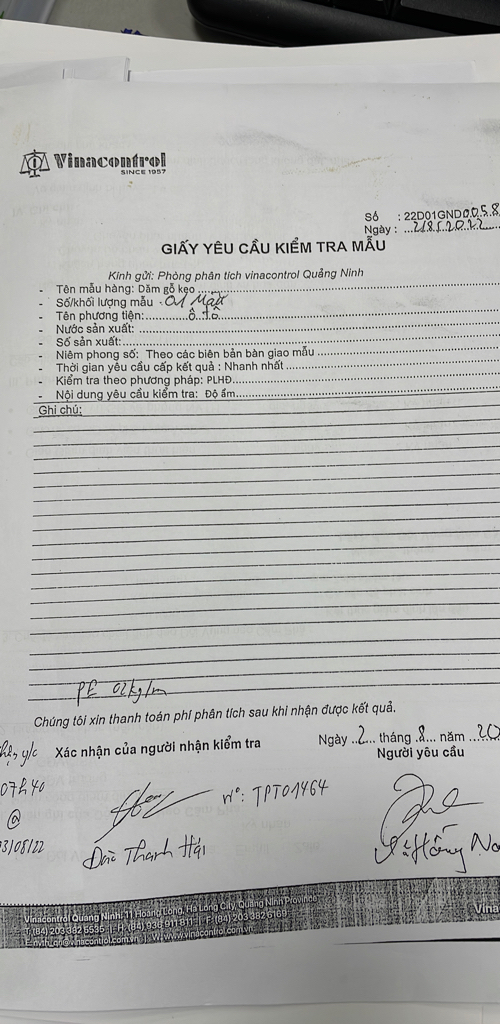 Vinacontrol
SINCE 1957
Số : 22D01GND0058
Ngày : 2/8/2022
GIẤY YÊU CẦU KIỂM TRA MẪU
Kính gửi: Phòng phân tích vinacontrol Quảng Ninh
- Tên mẫu hàng: Dăm gỗ keo
- Số/khối lượng mẫu : 01 Mẫu
- Tên phương tiện: ô tô
- Nước sản xuất:
- Số sản xuất:
- Niêm phong số: Theo các biên bản bàn giao mẫu
- Thời gian yêu cầu cấp kết quả : Nhanh nhất
- Kiểm tra theo phương pháp: PLHĐ
- Nội dung yêu cầu kiểm tra: Độ ẩm
Ghi chú:
PE 02kg/m
Chúng tôi xin thanh toán phí phân tích sau khi nhận được kết quả.
Ngày 2 tháng 8 năm 20
y/c Xác nhận của người nhận kiểm tra
Người yêu cầu
07h40
N°: TPT01464
@
03/08/22
Đào Thanh Hải
Hồng
Vinacontrol Quang Ninh: 11 Hoang Long, Ha Long City, Quang Ninh Province
T:(84) 203 382 5535 | H: (84) 936 911 811 | F: (84) 203 382 6169
E:nvth_qn@vinacontrol.com.vn | W: www.vinacontrol.com.vn
Vina